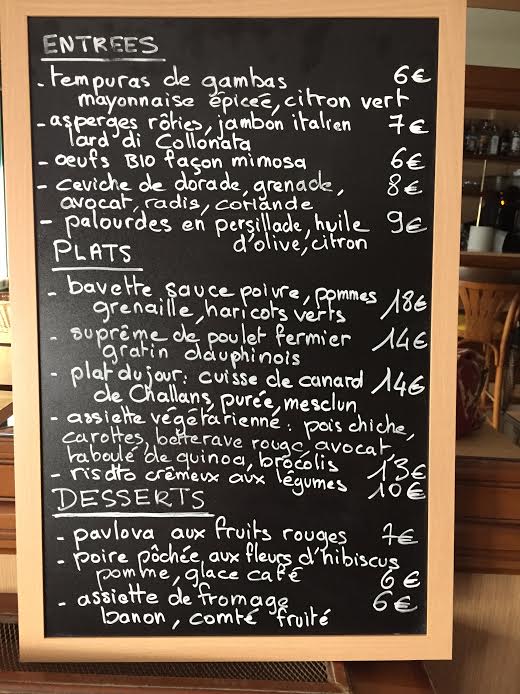 ENTREES
- tempuras de gambas 6€
mayonnaise épicée, citron vert
- asperges rôties, jambon italien 7€
lard di Collonata
- oeufs BIO façon mimosa 6€
- ceviche de dorade, grenade, 8€
avocat, radis, coriande
- palourdes en persillade, huile 9€
d'olive, citron
PLATS
- bavette sauce poivre, pommes 18€
grenaille, haricots verts
- suprême de poulet fermier 14€
gratin dauphinois
- plat du jour: cuisse de canard 14€
de Challans, purée, mesclun
- assiette végétarienne: pois chiche,
carottes, betterave rouge, avocat,
taboulé de quinoa, brocolis 13€
- risotto crêmeux aux légumes 10€
DESSERTS
- pavlova aux fruits rouges 7€
- poire pôchée aux fleurs d'hibiscus
pomme, glace café 6€
- assiette de fromage 6€
banon, comté fruité